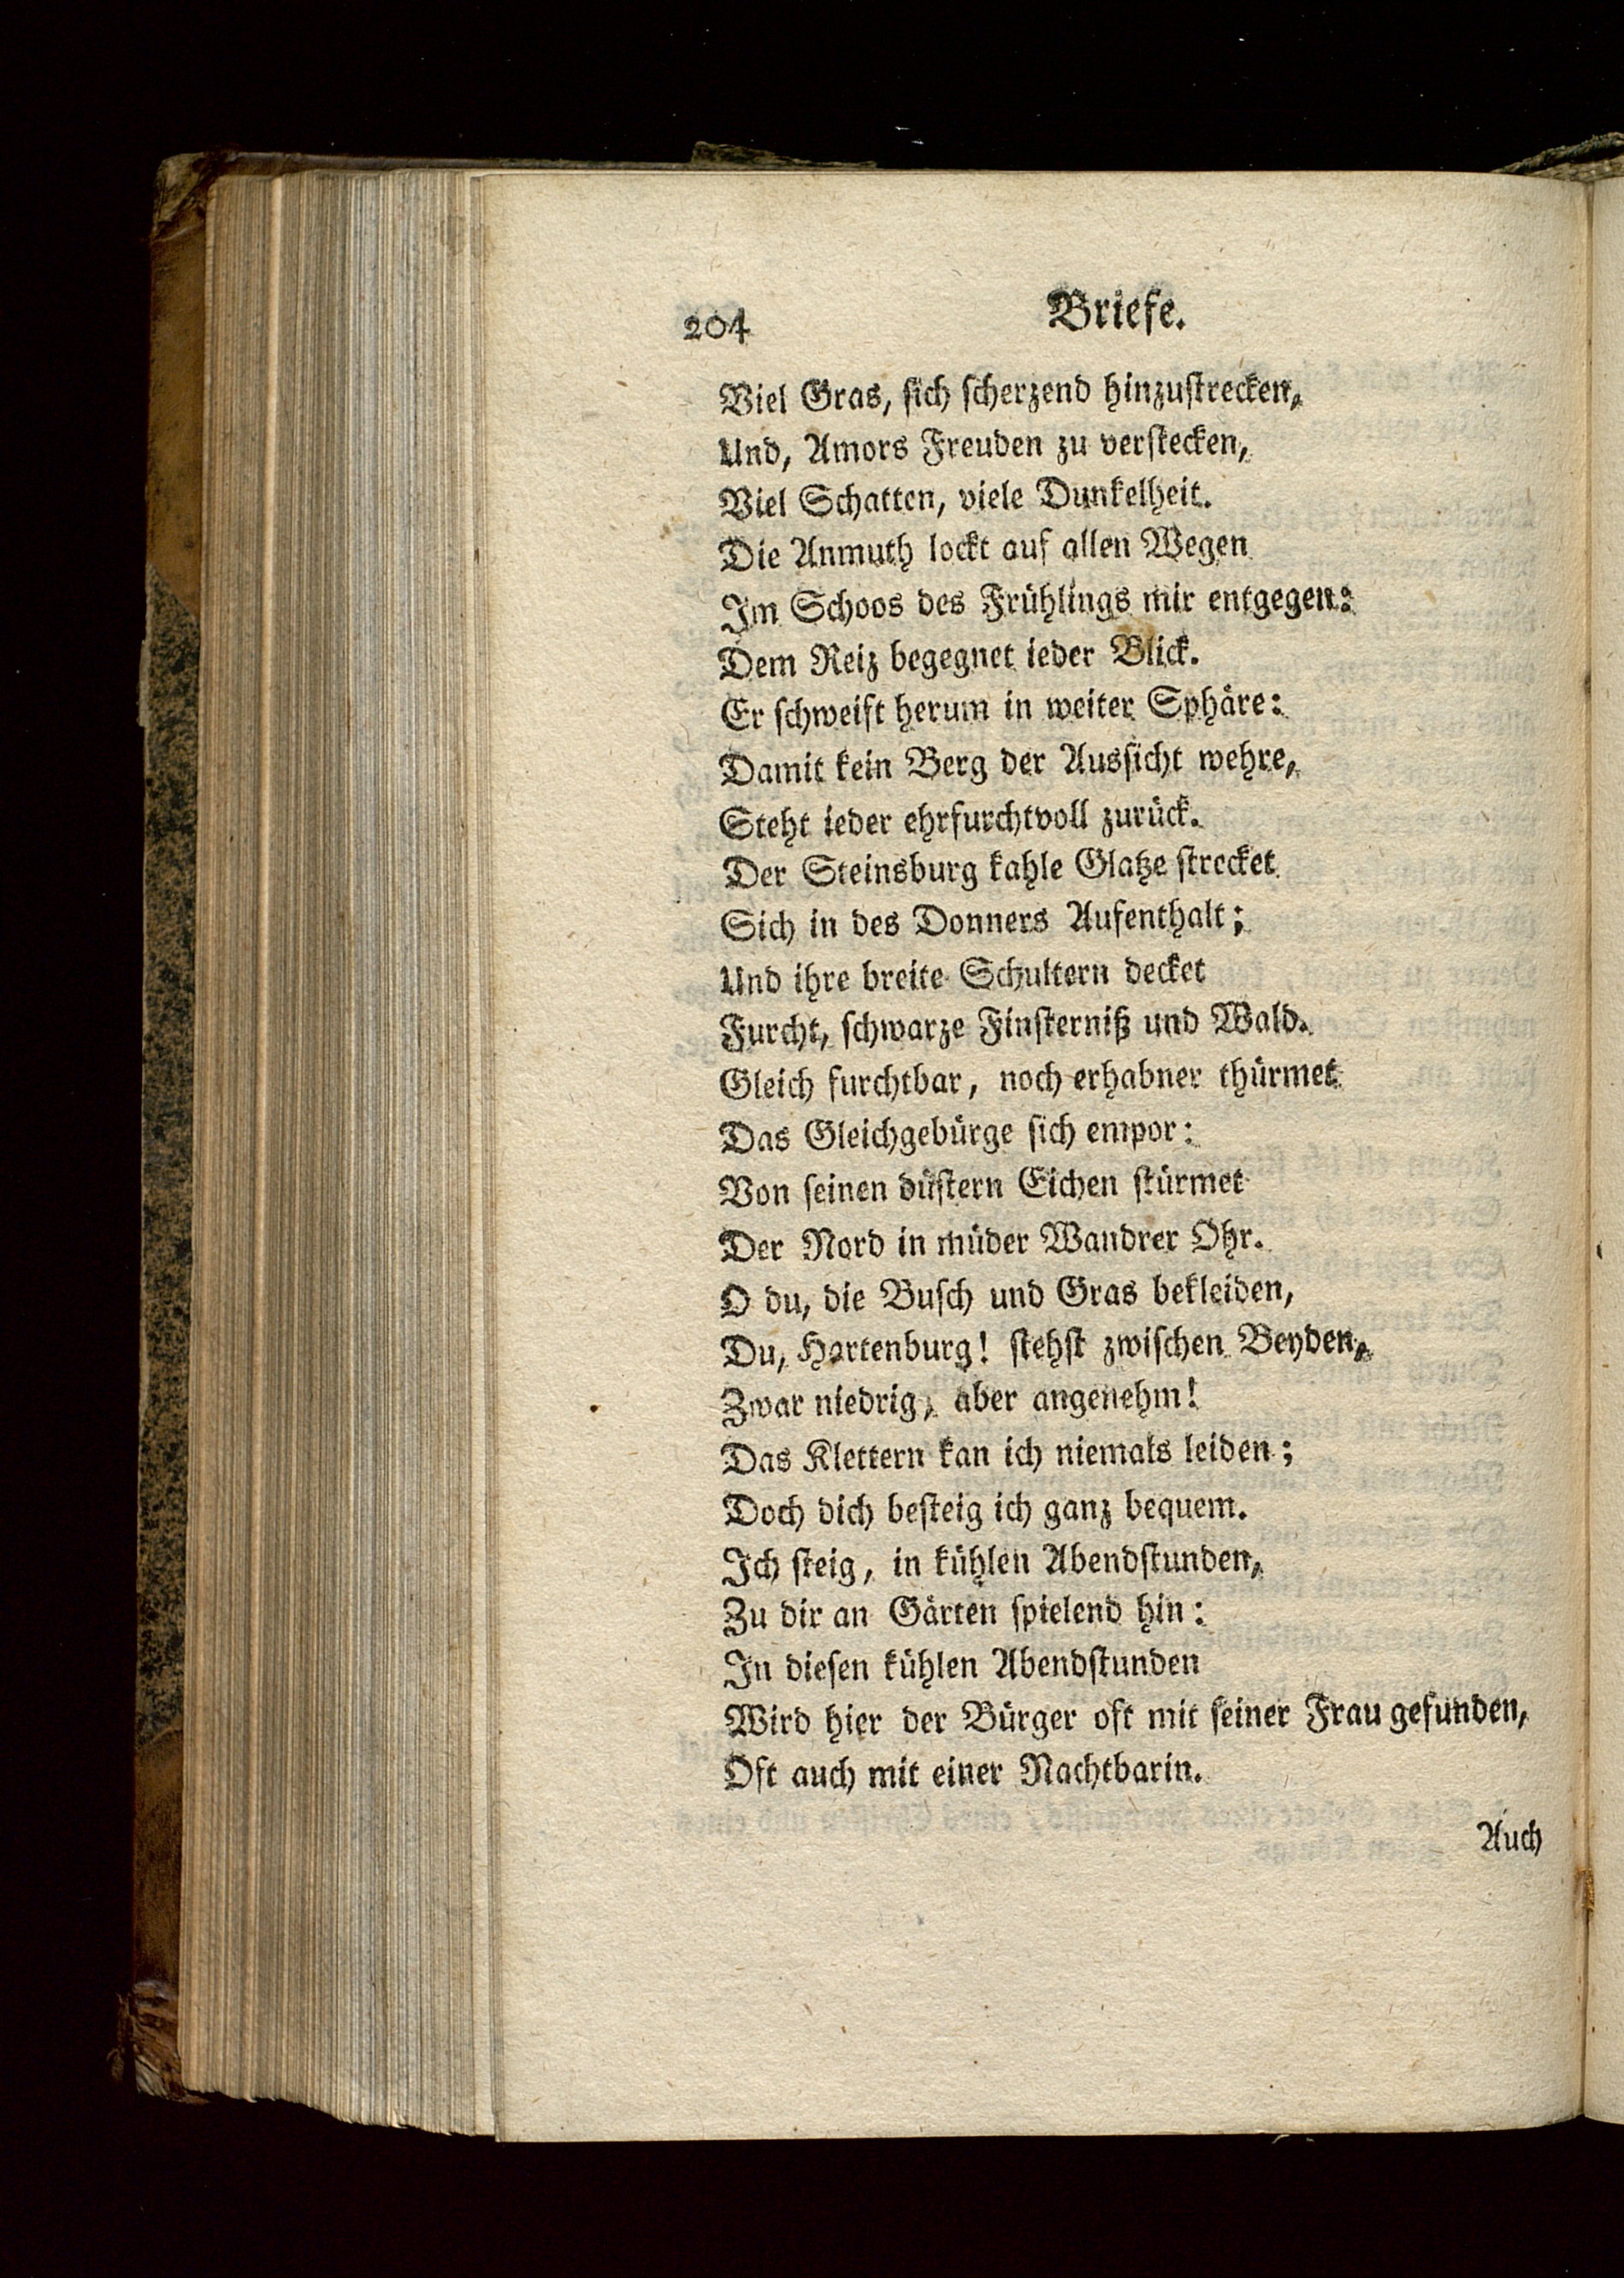 204 Briefe.
Viel Gras, sich scherzend hinzustrecken,
Und, Amors Freuden zu verstecken,
Viel Schatten, viele Dunkelheit.
Die Anmuth lockt auf allen Wegen
Im Schoos des Frühlings mir entgegen:
Dem Reiz begegnet ieder Blick.
Er schweift herum in weiter Sphäre:
Damit kein Berg der Aussicht wehre,
Steht ieder ehrfurchtvoll zurück.
Der Steinsburg kahle Glatze strecket
Sich in des Donners Aufenthalt;
Und ihre breite Schultern decket
Furcht, schwarze Finsterniß und Wald.
Gleich furchtbar, noch erhabner thürmet
Das Gleichgebürge sich empor:
Von seinen düstern Eichen stürmet
Der Nord in müder Wandrer Ohr.
O du, die Busch und Gras bekleiden,
Du, Hartenburg! stehst zwischen Beyden,
Zwar niedrig, aber angenehm!
Das Klettern kan ich niemals leiden;
Doch dich besteig ich ganz bequem.
Ich steig, in kühlen Abendstunden,
Zu dir an Gärten spielend hin:
In diesen kühlen Abendstunden
Wird hier der Bürger oft mit seiner Frau gefunden,
Oft auch mit einer Nachtbarin.
Auch